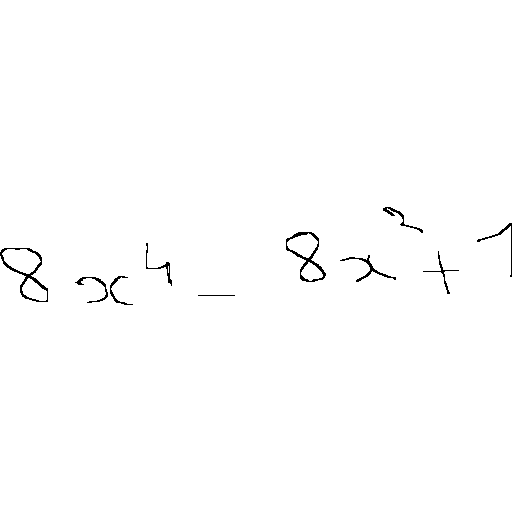 8x⁴ - 8x² + 1